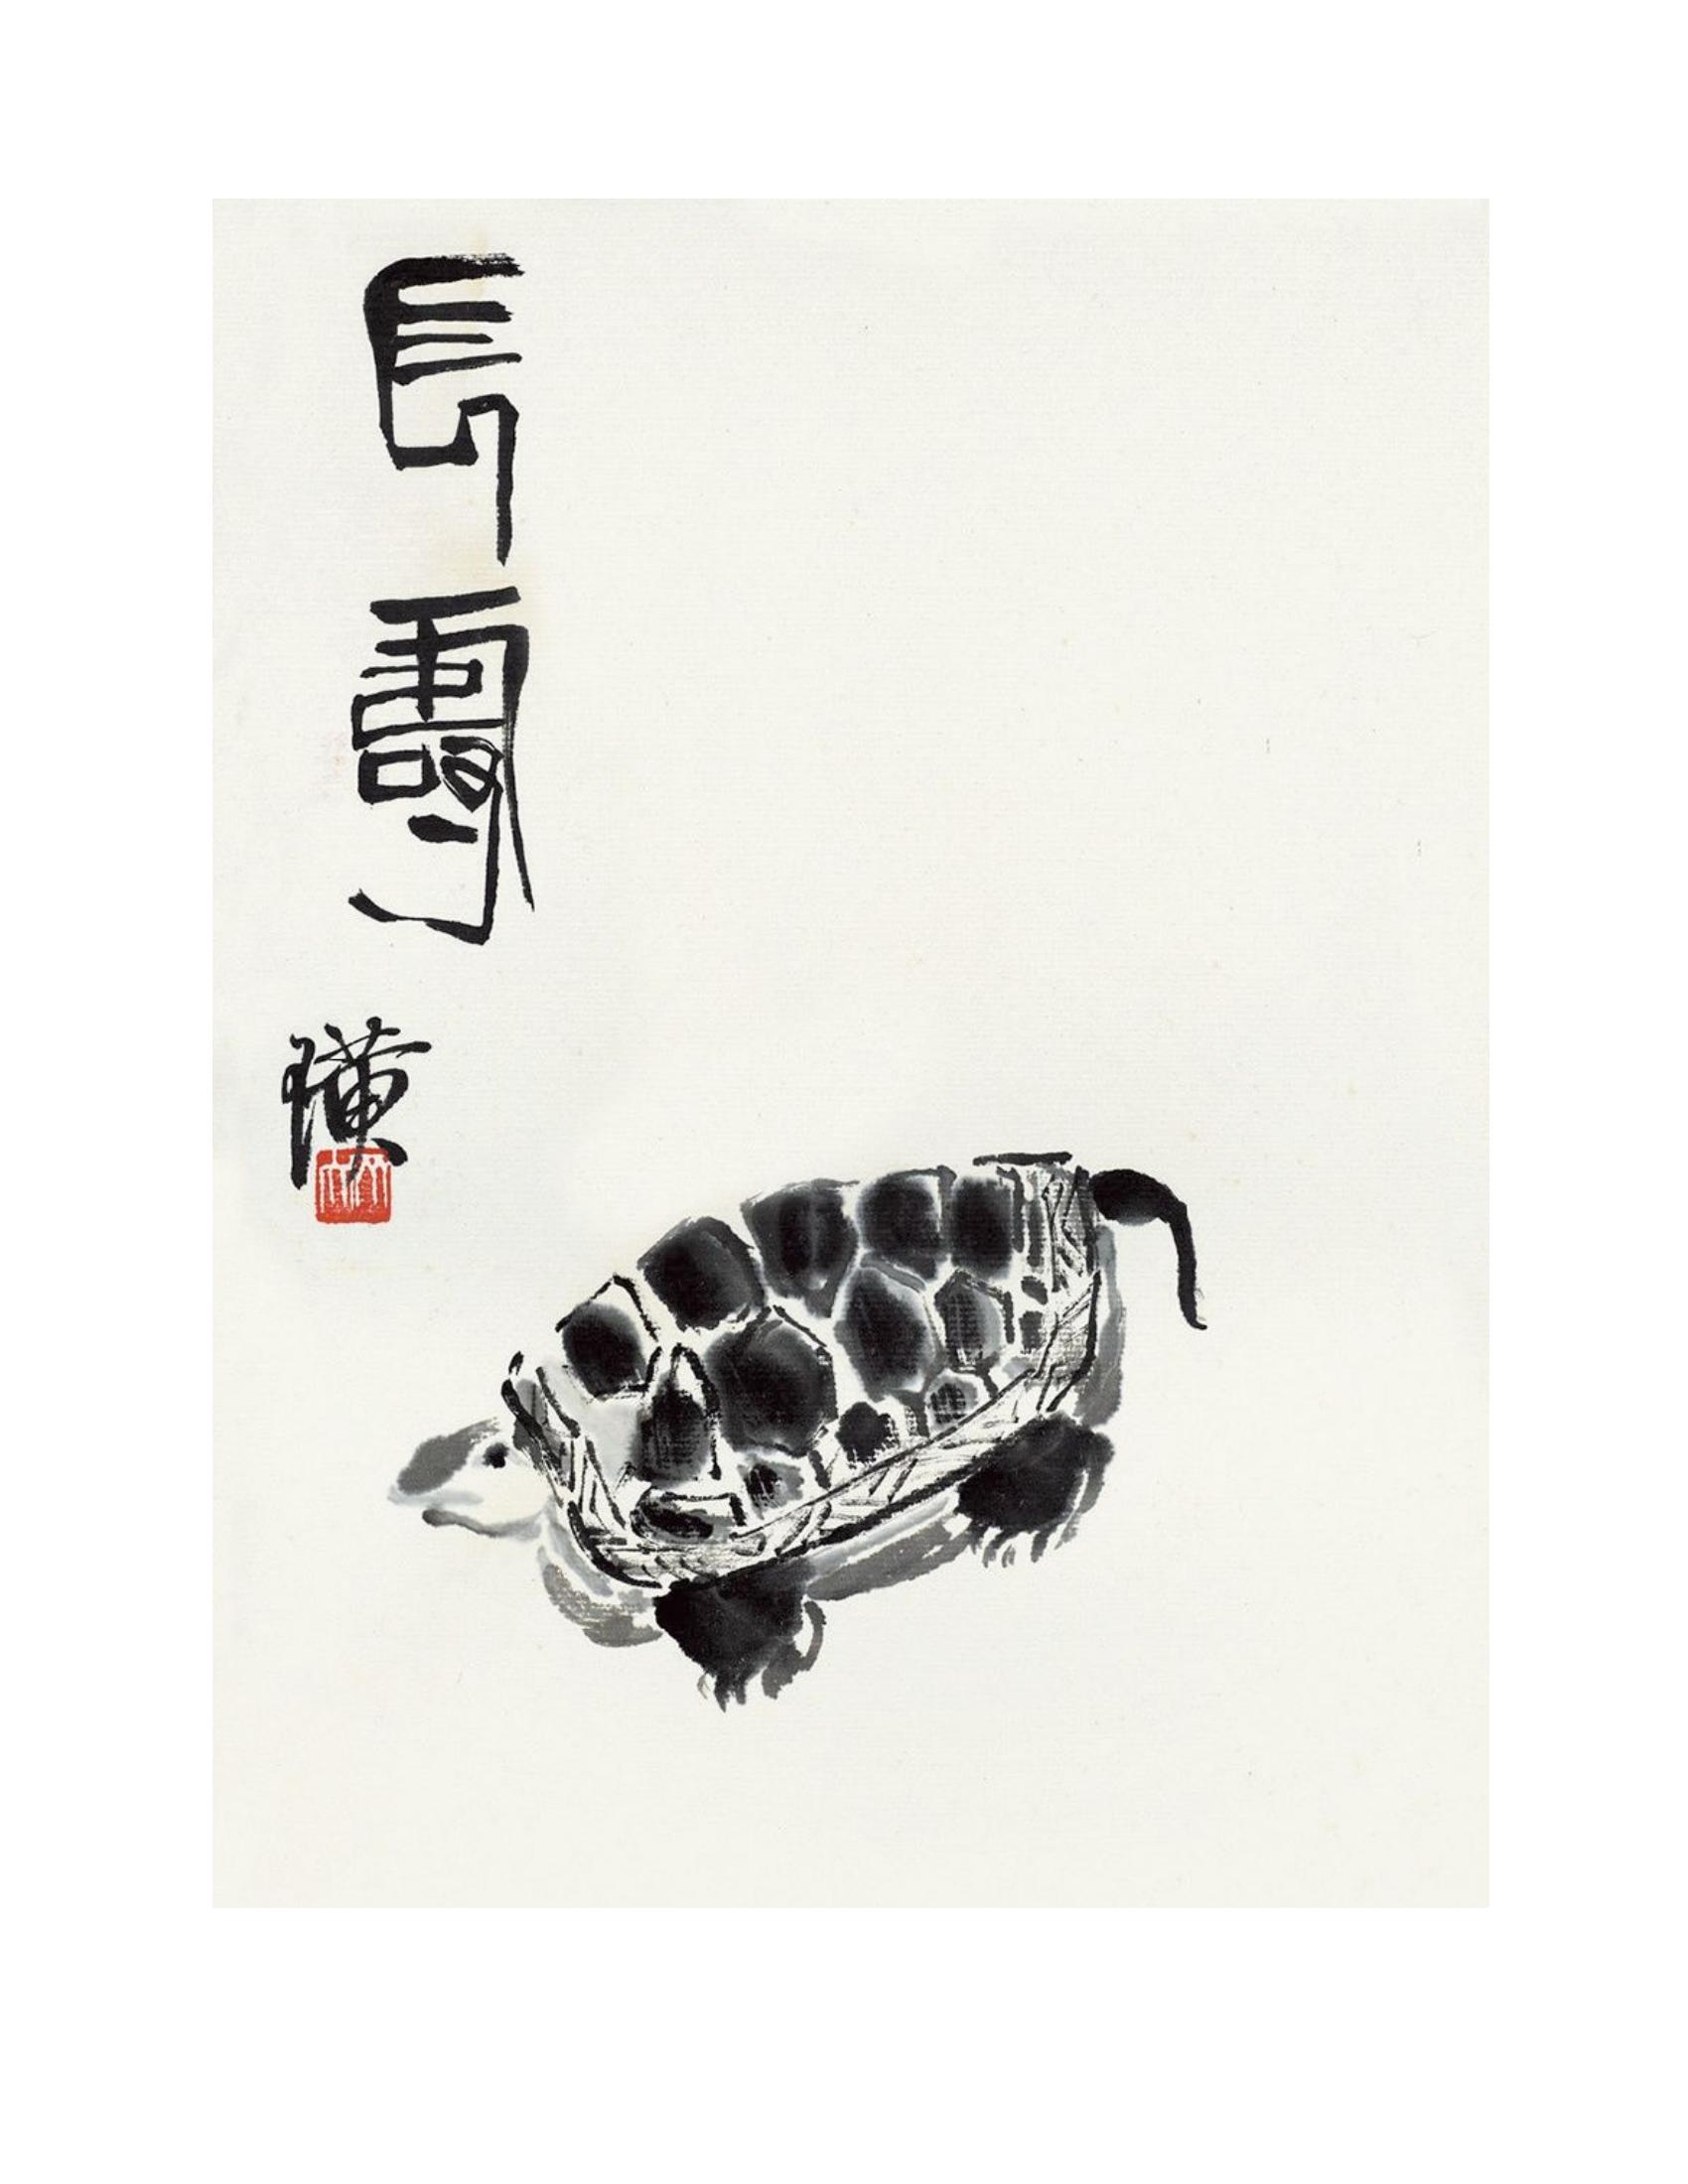 長壽
璜